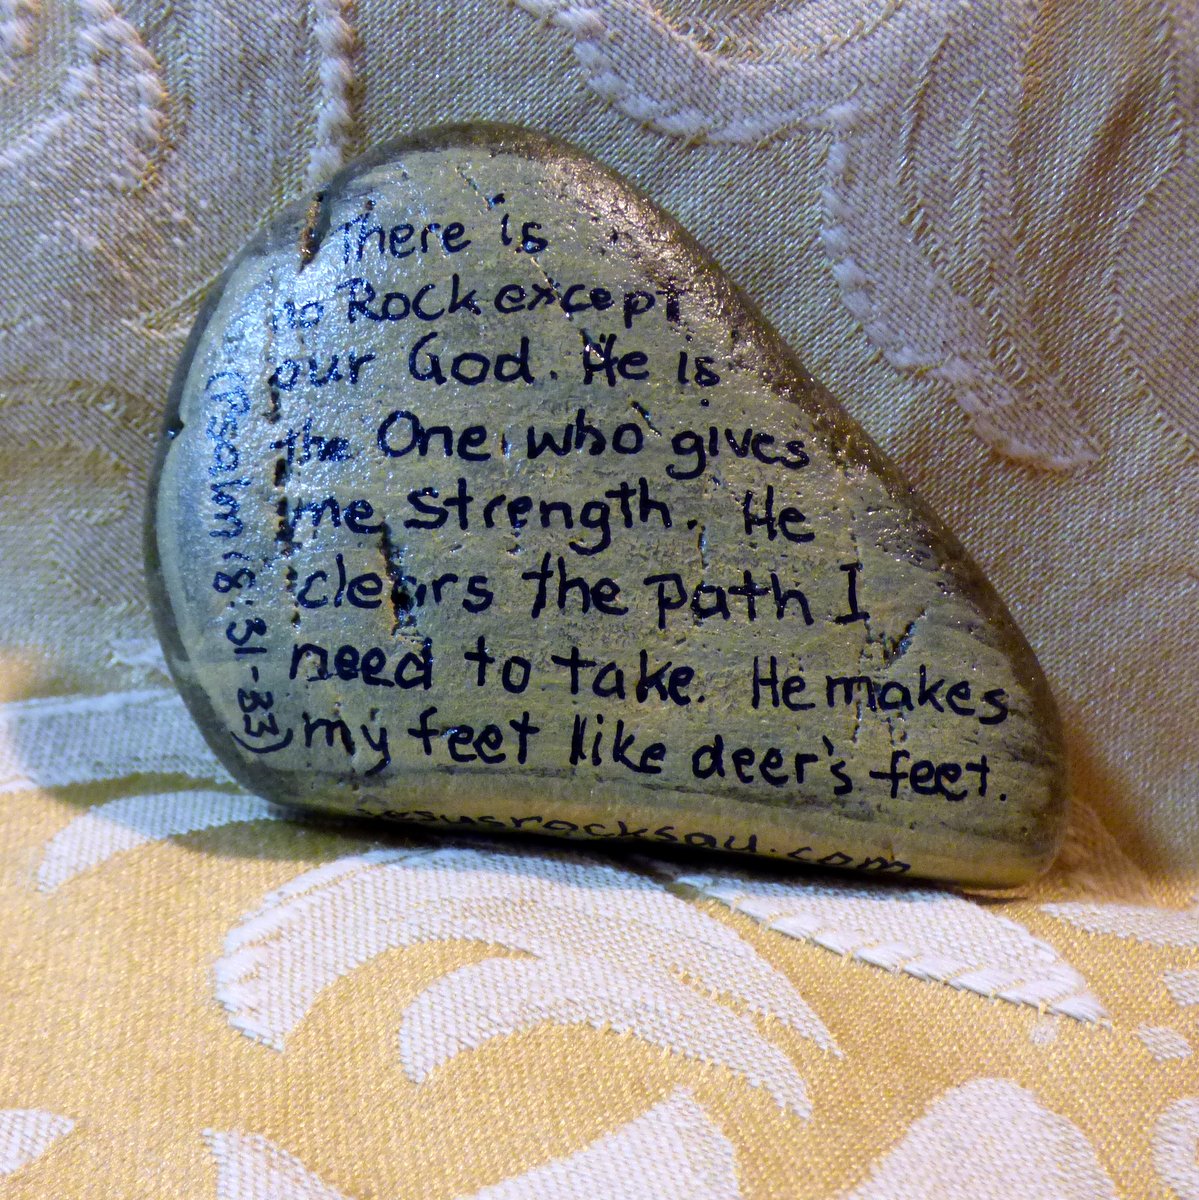 There is
no Rock except
our God. He is
the One who gives
me strength. He
clears the path I
need to take. He makes
my feet like deer's feet.
(Psalm 18:31-33)
jesusrocksau.com